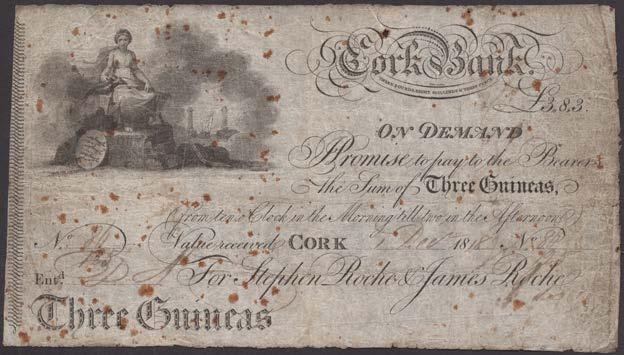 Cork Bank.
THREE POUNDS EIGHT SHILLINGS & THREE PENCE
£3.8.3.
ON DEMAND
I Promise to pay to the Bearer
the Sum of Three Guineas,
(from ten o Clock in the Morning till two in the Afternoon)
No. Value received CORK 1818 No.
Entd. For Stephen Roche & James Roche
Three Guineas